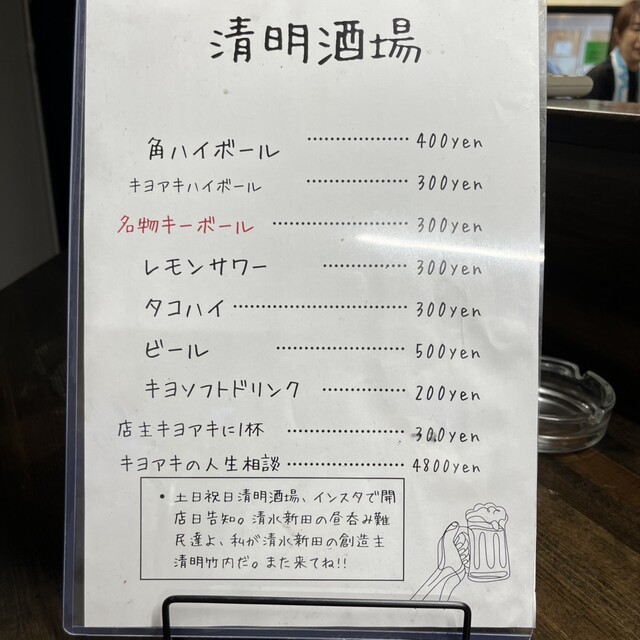 清明酒場
角ハイボール ……………… 400yen
キヨアキハイボール ……………… 300yen
名物キーボール ……………… 300yen
レモンサワー ……………… 300yen
タコハイ ……………… 300yen
ビール ……………… 500yen
キヨソフトドリンク ……………… 200yen
店主キヨアキに1杯 ……………… 300yen
キヨアキの人生相談 ……………… 4800yen
• 土日祝日清明酒場、インスタで開
店日告知。清水新田の昼呑み難
民達よ、私が清水新田の創造主
清明竹内だ。また来てね!!